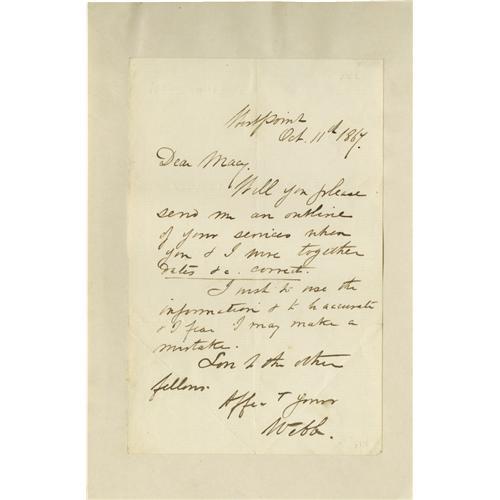 West Point
Oct. 11th 1867.
Dear Macy.
Will you please
send me an outline
of your services when
you & I were together
Dates &c. correct.
I wish to use the
information & to be accurate
& I fear I may make a
mistake.
Love to the other
fellows.
Affect Yours
Webb.